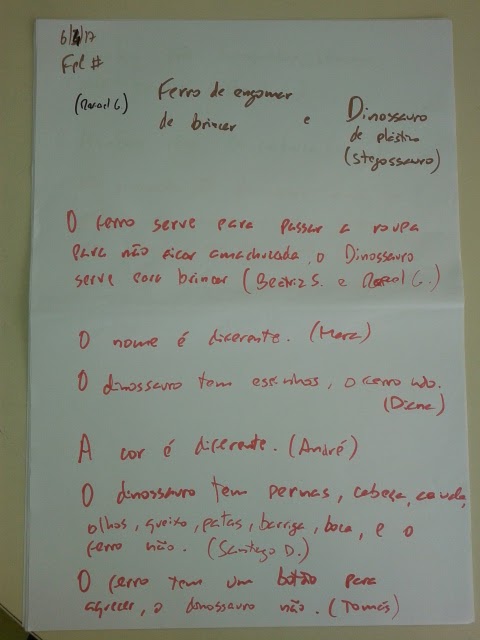 6/4/17
Fpl #
(Rafael G.)
Ferro de engomar
de brincar
e
Dinossauro
de plástico
(stegossauro)
O ferro serve para passar a roupa
para não ficar amachucada, o Dinossauro
serve para brincar (Beatriz S. e Rafael G.)
O nome é diferente. (Marc)
O dinossauro tem espinhos, o ferro não.
(Diana)
A cor é diferente. (André)
O dinossauro tem pernas, cabeça, cauda,
olhos, queixo, patas, barriga, boca, e o
ferro não. (Santiago D.)
O ferro tem um botão para
aquecer, o dinossauro não. (Tomás)